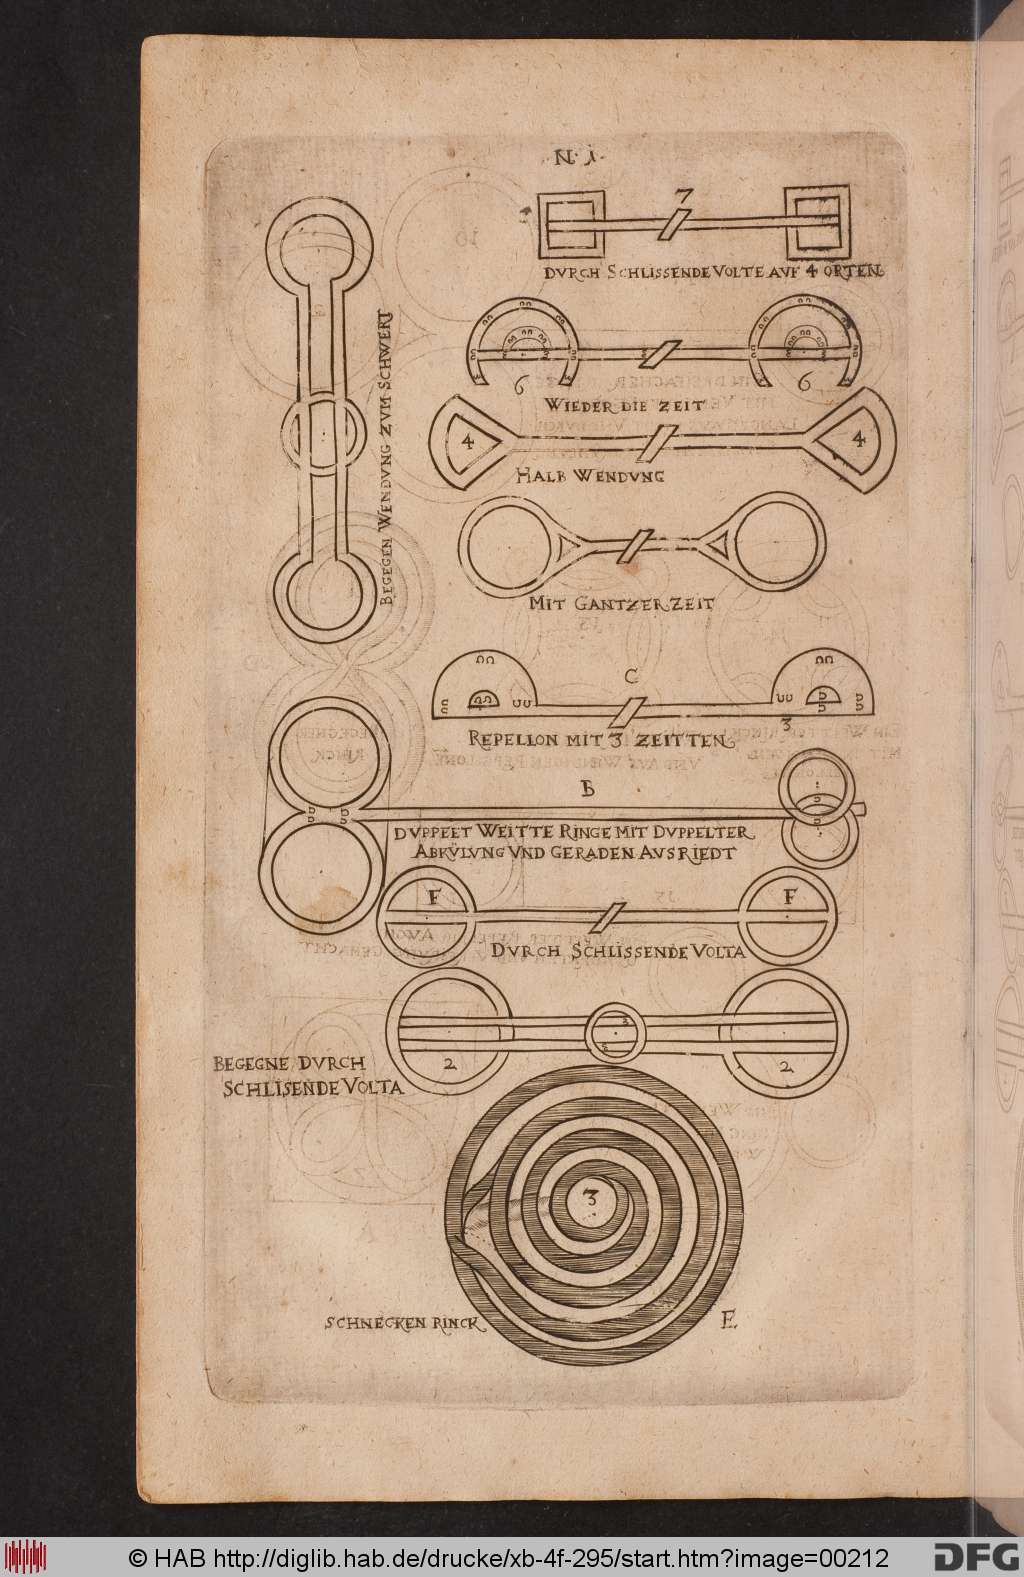 N. 1.
7
DVRCH SCHLISSENDE VOLTE AVF 4 ORTEN
6 6
WIEDER DIE ZEIT
4 4
HALB WENDVNG
MIT GANTZER ZEIT
BEGEGEN WENDVNG ZVM SCHWERT
C
3
REPELLON MIT 3 ZEITTEN
B
DVPPEET WEITTE RINGE MIT DVPPELTER
ABKÜLVNG VND GERADEN AVSRIEDT
F F
DVRCH SCHLISSENDE VOLTA
2 2
BEGEGNE DVRCH
SCHLISENDE VOLTA
3
SCHNECKEN RINCK
E.
© HAB http://diglib.hab.de/drucke/xb-4f-295/start.htm?image=00212
DFG